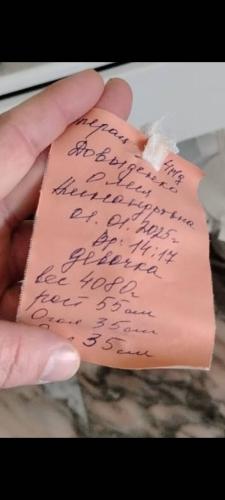 Давыденко
Олеся
Александровна
01.01.2025г
Вр: 14:17
девочка
вес 4080г
рост 55см
Огол 35см
35см